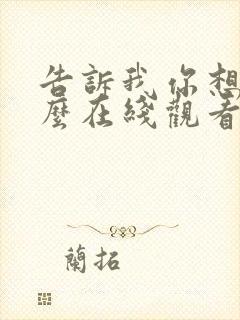 告訴我你想
麼在綫觀看
蘭拓